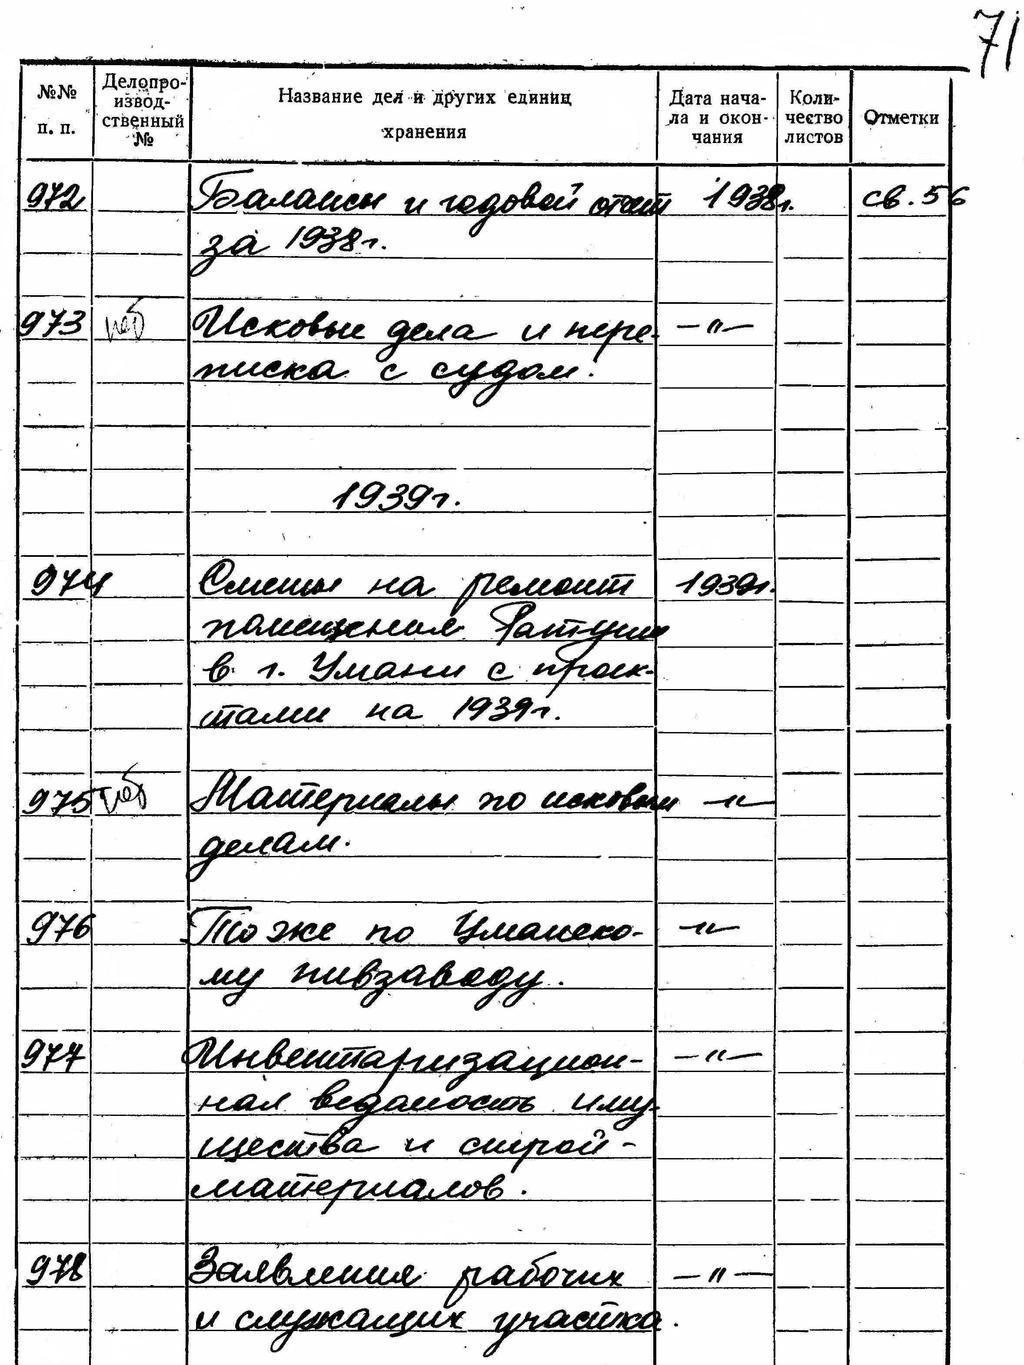 71
№№ п. п.
Делопроизводственный №
Название дел и других единиц хранения
Дата начала и окончания
Количество листов
Отметки
972 Балансы и годовой отчет 1938г. св. 56
за 1938г.
973 Исковые дела и пере- —"—
писка с судом.
1939г.
974 Сметы на ремонт 1939г.
помещения Ратуши
в г. Умани с проек-
тами на 1939г.
975 Материалы по исковым —"—
делам.
976 То же по Уманско- —"—
му пивзаводу.
977 Инвентаризацион- —"—
ная ведомость иму-
щества и строй-
материалов.
978 Заявления рабочих —"—
и служащих участка.